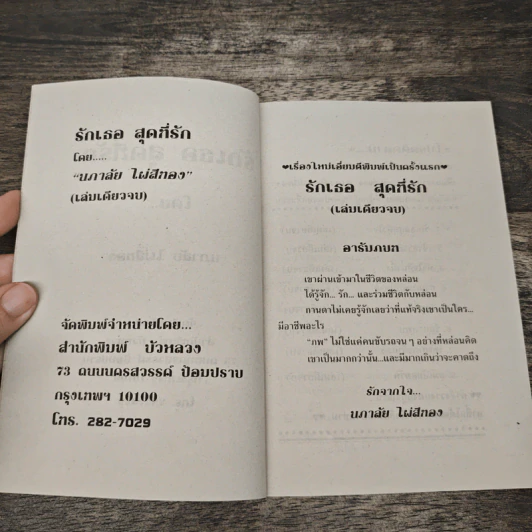 รักเธอ สุดที่รัก
โดย.....
"นภาลัย ไผ่สีทอง"
(เล่มเดียวจบ)
จัดพิมพ์จำหน่ายโดย...
สำนักพิมพ์ บัวหลวง
73 ถนนนครสวรรค์ ป้อมปราบ
กรุงเทพฯ 10100
โทร. 282-7029
❤เรื่องใหม่เดี่ยมตีพิมพ์เป็นครั้งแรก❤
รักเธอ สุดที่รัก
(เล่มเดียวจบ)
อารัมภบท
เขาผ่านเข้ามาในชีวิตของหล่อน
ได้รู้จัก... รัก... และร่วมชีวิตกับหล่อน
กานดาไม่เคยรู้จักเลยว่าที่แท้จริงเขาเป็นใคร...
มีอาชีพอะไร
"ภพ" ไม่ใช่แค่คนขับรถจน ๆ อย่างที่หล่อนคิด
เขาเป็นมากกว่านั้น...และมีมากเกินว่าจะคาดถึง
รักจากใจ...
นภาลัย ไผ่สีทอง